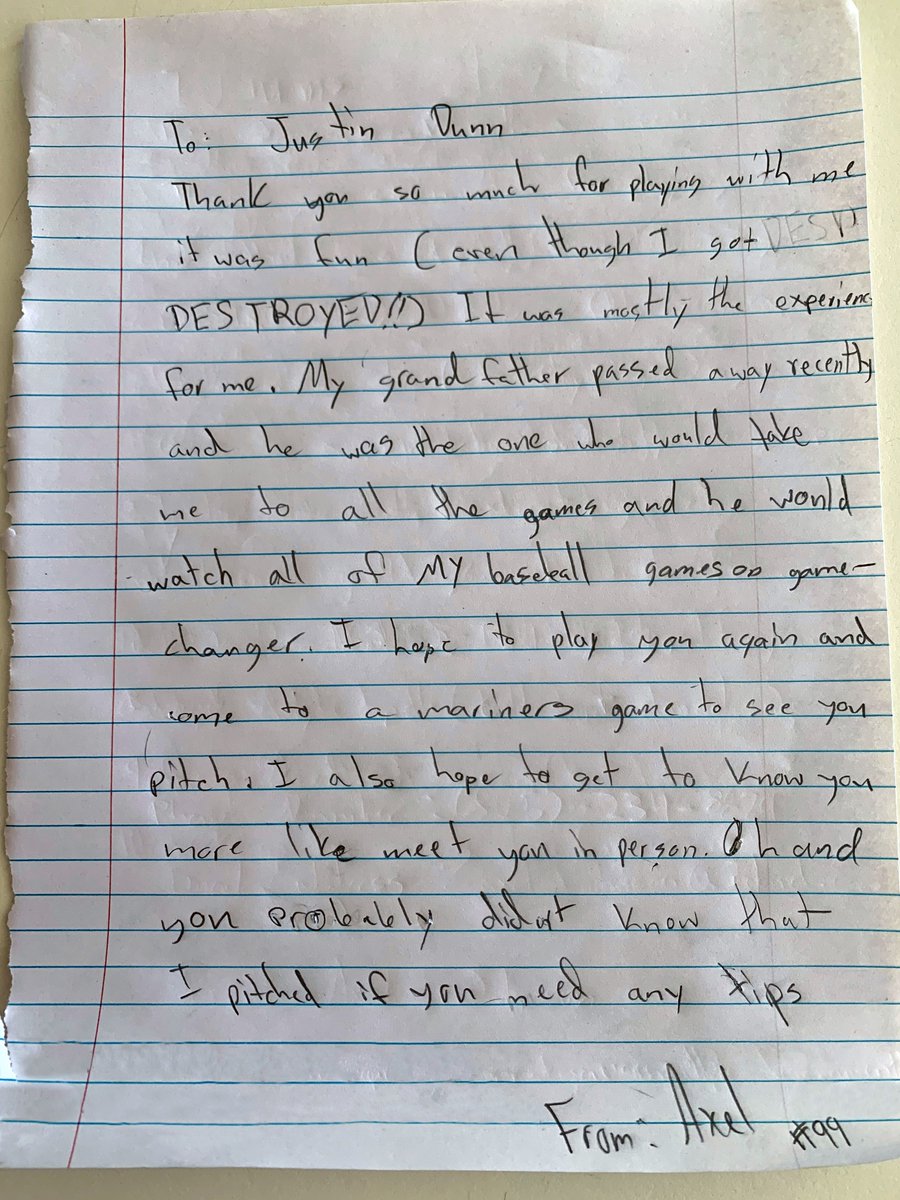 To: Justin Dunn
Thank you so much for playing with me
it was fun (even though I got DESTR
DESTROYED!!) It was mostly the experienc
for me. My grandfather passed away recently
and he was the one who would take
me to all the games and he would
watch all of MY baseball games on game-
changer. I hope to play you again and
come to a mariners game to see you
pitch. I also hope to get to know you
more like meet you in person. Oh and
you probably didnt know that
I pitched if you need any tips
From: Axel #99